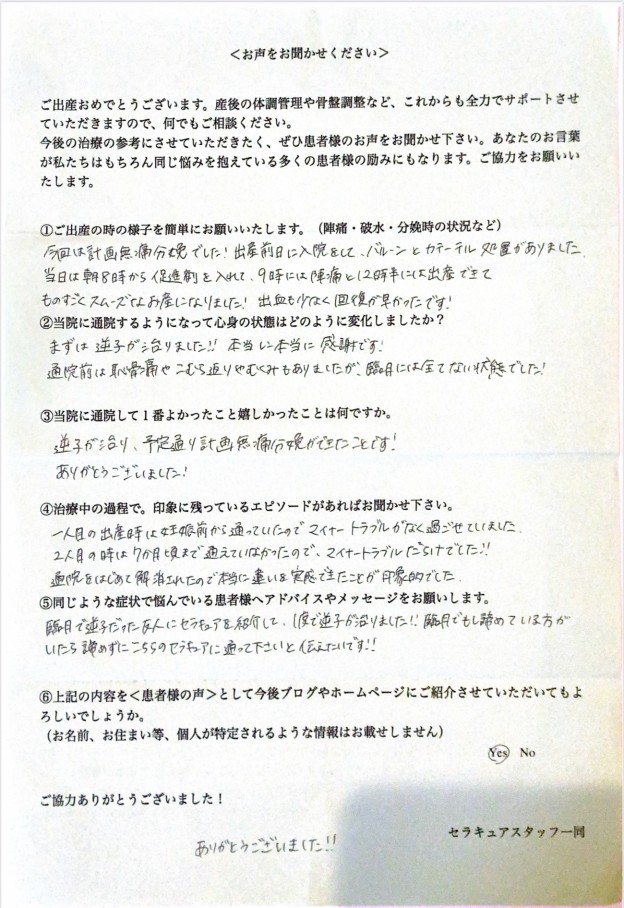 ＜お声をお聞かせください＞
ご出産おめでとうございます。産後の体調管理や骨盤調整など、これからも全力でサポートさせ
ていただきますので、何でもご相談ください。
今後の治療の参考にさせていただきたく、ぜひ患者様のお声をお聞かせ下さい。あなたのお言葉
が私たちはもちろん同じ悩みを抱えている多くの患者様の励みにもなります。ご協力をお願いい
たします。
①ご出産の時の様子を簡単にお願いいたします。（陣痛・破水・分娩時の状況など）
今回は計画無痛分娩でした！出産前日に入院をして、バルーンとカテーテル処置がありました。
当日は朝8時から促進剤を入れて、9時には陣痛と12時半には出産できて
ものすごくスムーズなお産になりました！出血も少なく回復が早かったです！
②当院に通院するようになって心身の状態はどのように変化しましたか？
まずは逆子が治りました!!本当に本当に感謝です！
通院前は恥骨痛やこむら返りやむくみもありましたが、臨月には全てない状態でした！
③当院に通院して１番よかったこと嬉しかったことは何ですか。
逆子が治り、予定通り計画無痛分娩ができたことです！
ありがとうございました！
④治療中の過程で。印象に残っているエピソードがあればお聞かせ下さい。
一人目の出産時は妊娠前から通っていたのでマイナートラブルがなく過ごせていました。
2人目の時は7か月頃まで通えていなかったので、マイナートラブルだらけでした!!
通院をはじめて解消されたので本当に違いを実感できたことが印象的でした。
⑤同じような症状で悩んでいる患者様へアドバイスやメッセージをお願いします。
臨月で逆子だった友人にセラキュアを紹介して、1度で逆子が治りました!!臨月でもし諦めている方が
いたら諦めずにこちらのセラキュアに通って下さいと伝えたいです!!
⑥上記の内容を＜患者様の声＞として今後ブログやホームページにご紹介させていただいてもよ
ろしいでしょうか。
（お名前、お住まい等、個人が特定されるような情報はお載せしません）
Yes No
ご協力ありがとうございました！
セラキュアスタッフ一同
ありがとうございました!!